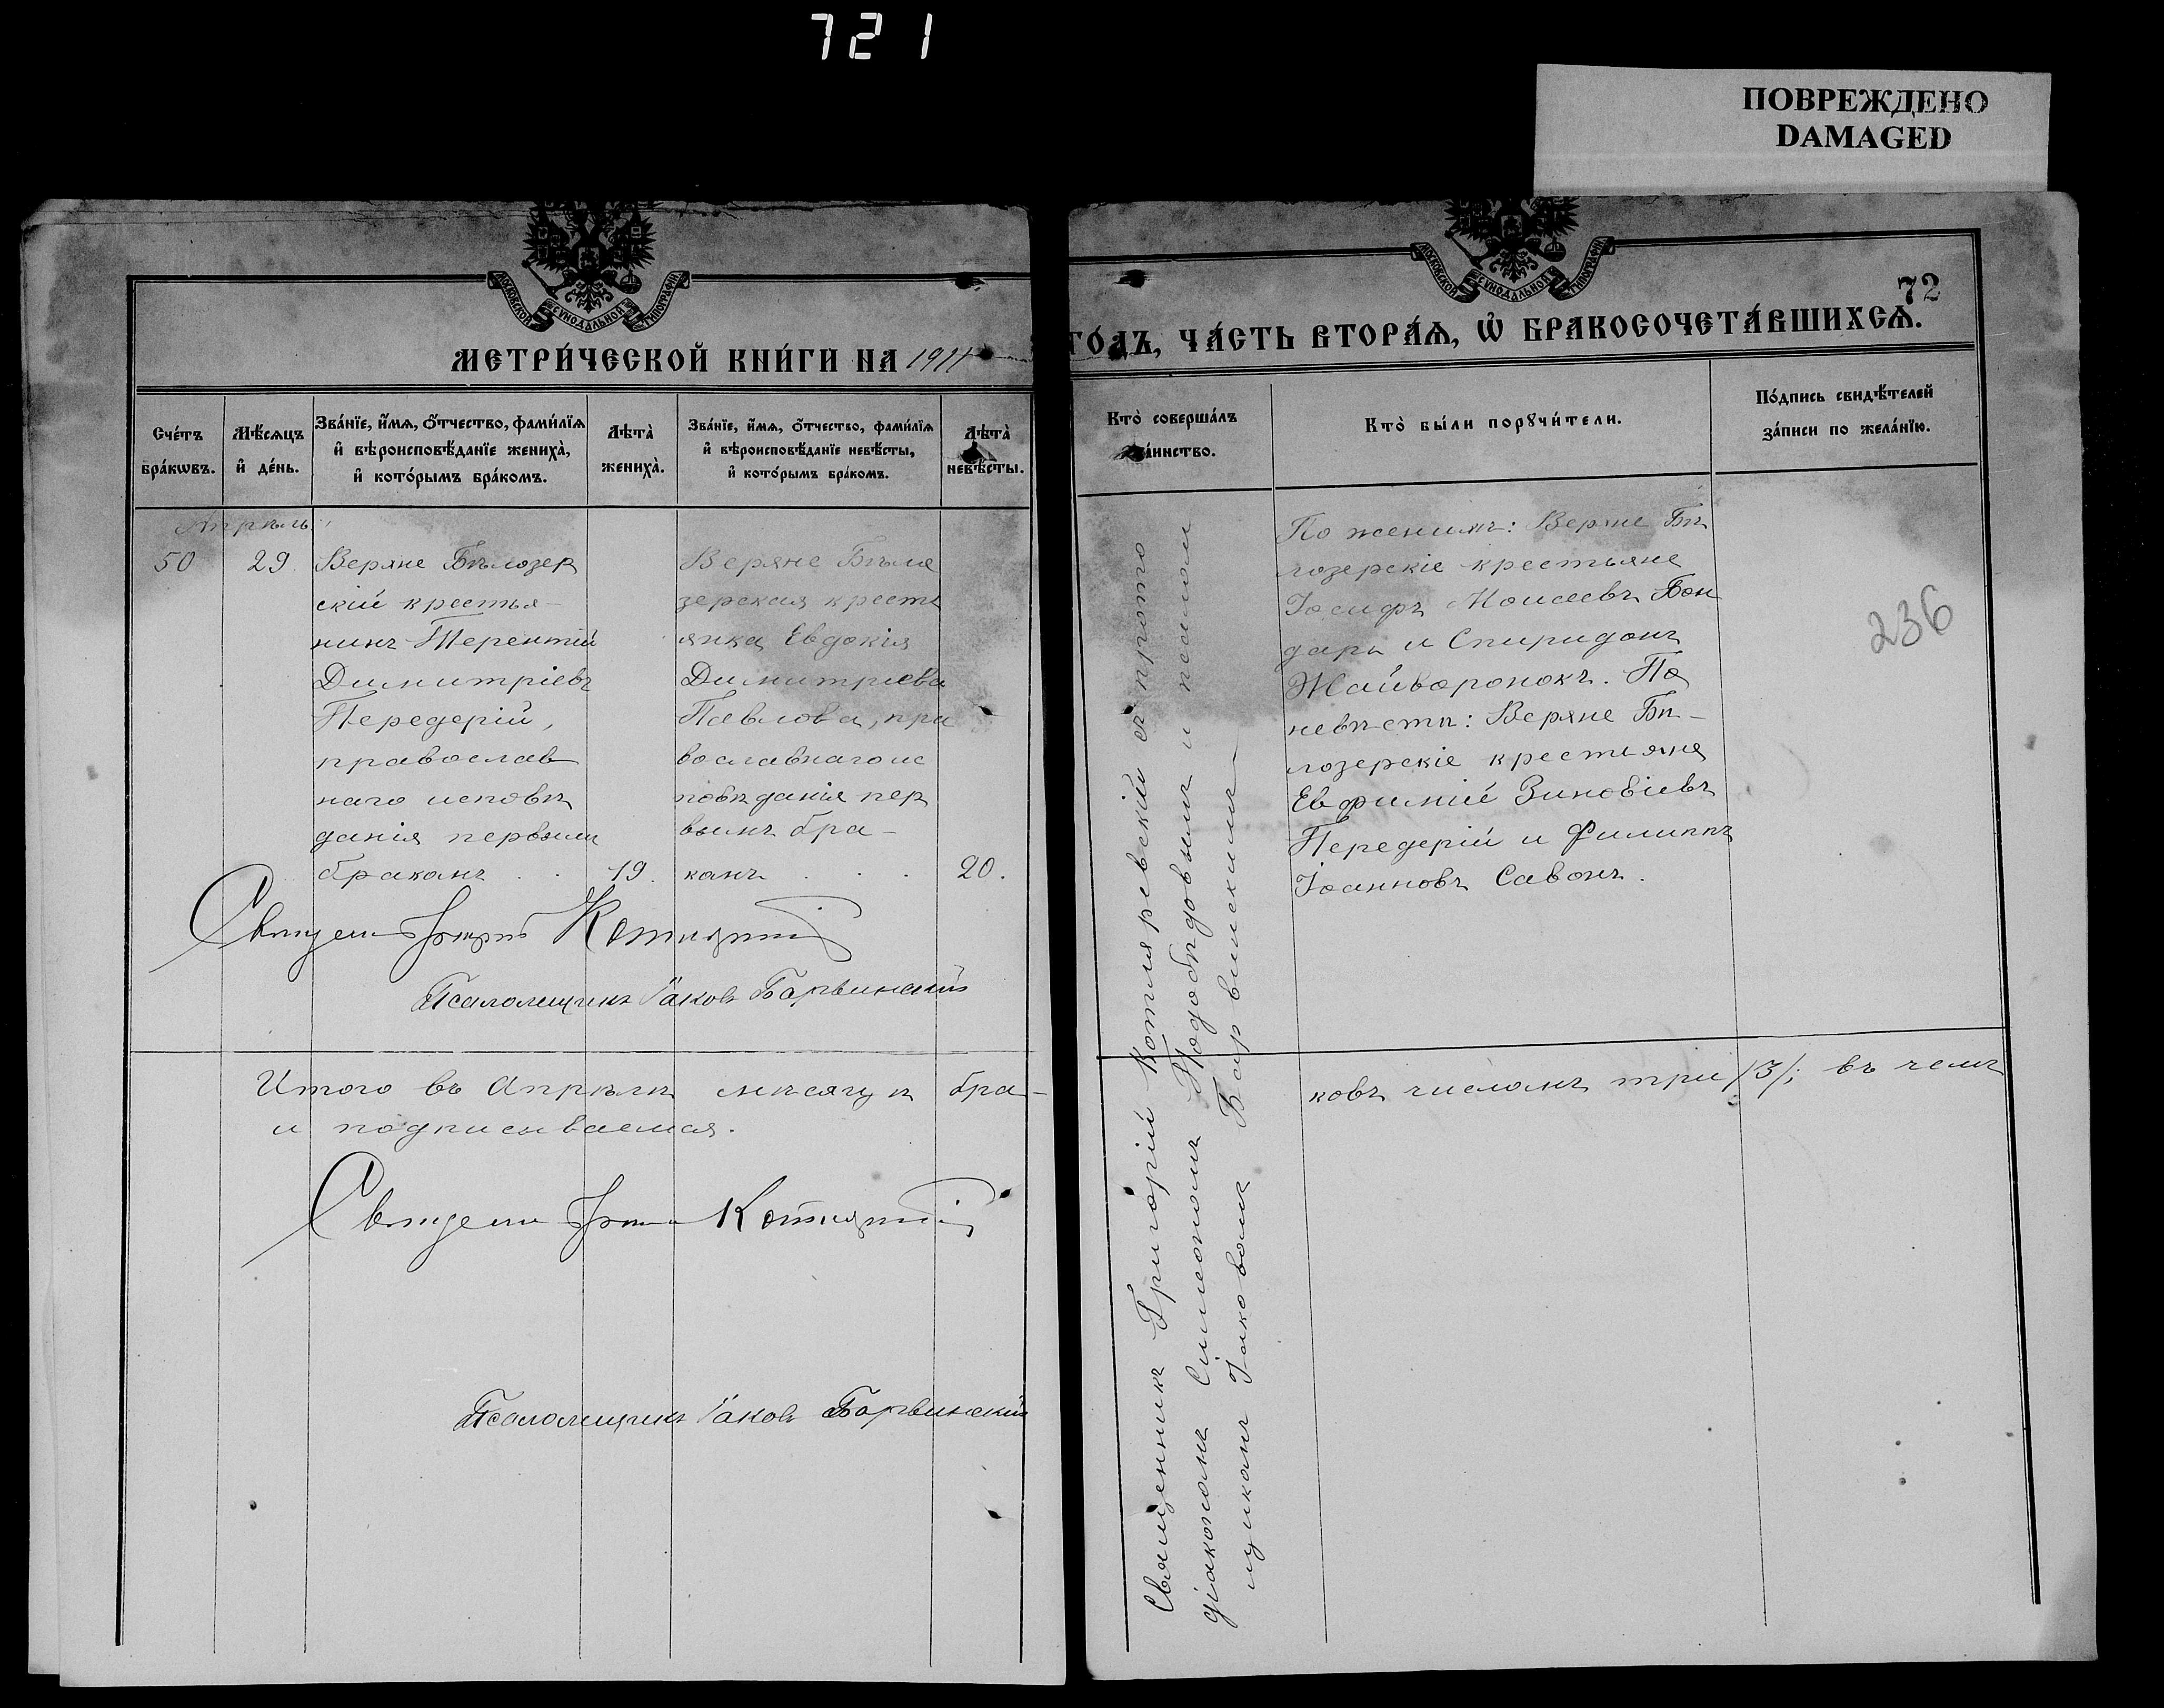 721
ПОВРЕЖДЕНО
DAMAGED
МОСКОВСКОЙ СѴНОДАЛЬНОЙ ТИПОГРАФІИ
МОСКОВСКОЙ СѴНОДАЛЬНОЙ ТИПОГРАФІИ
72
МЕТРИ́ЧЕСКОЙ КНИ́ГИ НА 1911
ГО́ДЪ, ЧА́СТЬ ВТОРА́Ѧ, Ѡ҆ БРАКОСОЧЕТА́ВШИХСѦ.
Сче́тъ
бра́кѡвъ.
Мѣ́сѧцъ
и҆ де́нь.
Зва́нїе, и҆́мѧ, ѻ҆́тчество, фами́лїѧ
и҆ вѣроисповѣ́данїе жениха̀,
и҆ кото́рымъ бра́комъ.
Лѣта̀
жениха̀.
Зва́нїе, и҆́мѧ, ѻ҆́тчество, фами́лїѧ
и҆ вѣроисповѣ́данїе невѣ́сты,
и҆ кото́рымъ бра́комъ.
Лѣта̀
невѣ́сты.
Кто̀ соверша́лъ
та́инство.
Кто̀ бы́ли порꙋчи́тели.
По́дпись свидѣ́телей
за́писи по жела́нїю.
Апрѣль
50
29
Верхне Бѣлозер
скій крестья-
нинъ Терентій
Димитріевъ
Передерій,
православ
наго исповѣ
данія первымъ
бракомъ . .
19.
Верхне Бѣло
зерская кресть
янка Евдокія
Димитріева
Павлова, пра
вославнаго ис
повѣданія пер
вымъ бра-
комъ . . .
20.
Священникъ Григорій Котляревскій съ прото
діакономъ Симеономъ Подобѣдовымъ и псалом
щикомъ Іаковомъ Барвинскимъ
По женихѣ: Верхне Бѣ
лозерскіе крестьяне
Іосифъ Моисеевъ Бон
дарь и Спиридонъ
Жайворонокъ. По
невѣстѣ: Верхне Бѣ-
лозерскіе крестьяне
Евфимій Зиновіевъ
Передерій и Филиппъ
Іоанновъ Савонъ.
236
Псаломщикъ Іаковъ Барвинскій
Итого въ Апрѣлѣ мѣсяцѣ бра-
ковъ числомъ три /3/; въ чемъ
и подписываемся.
Псаломщикъ Іаковъ Барвинскій